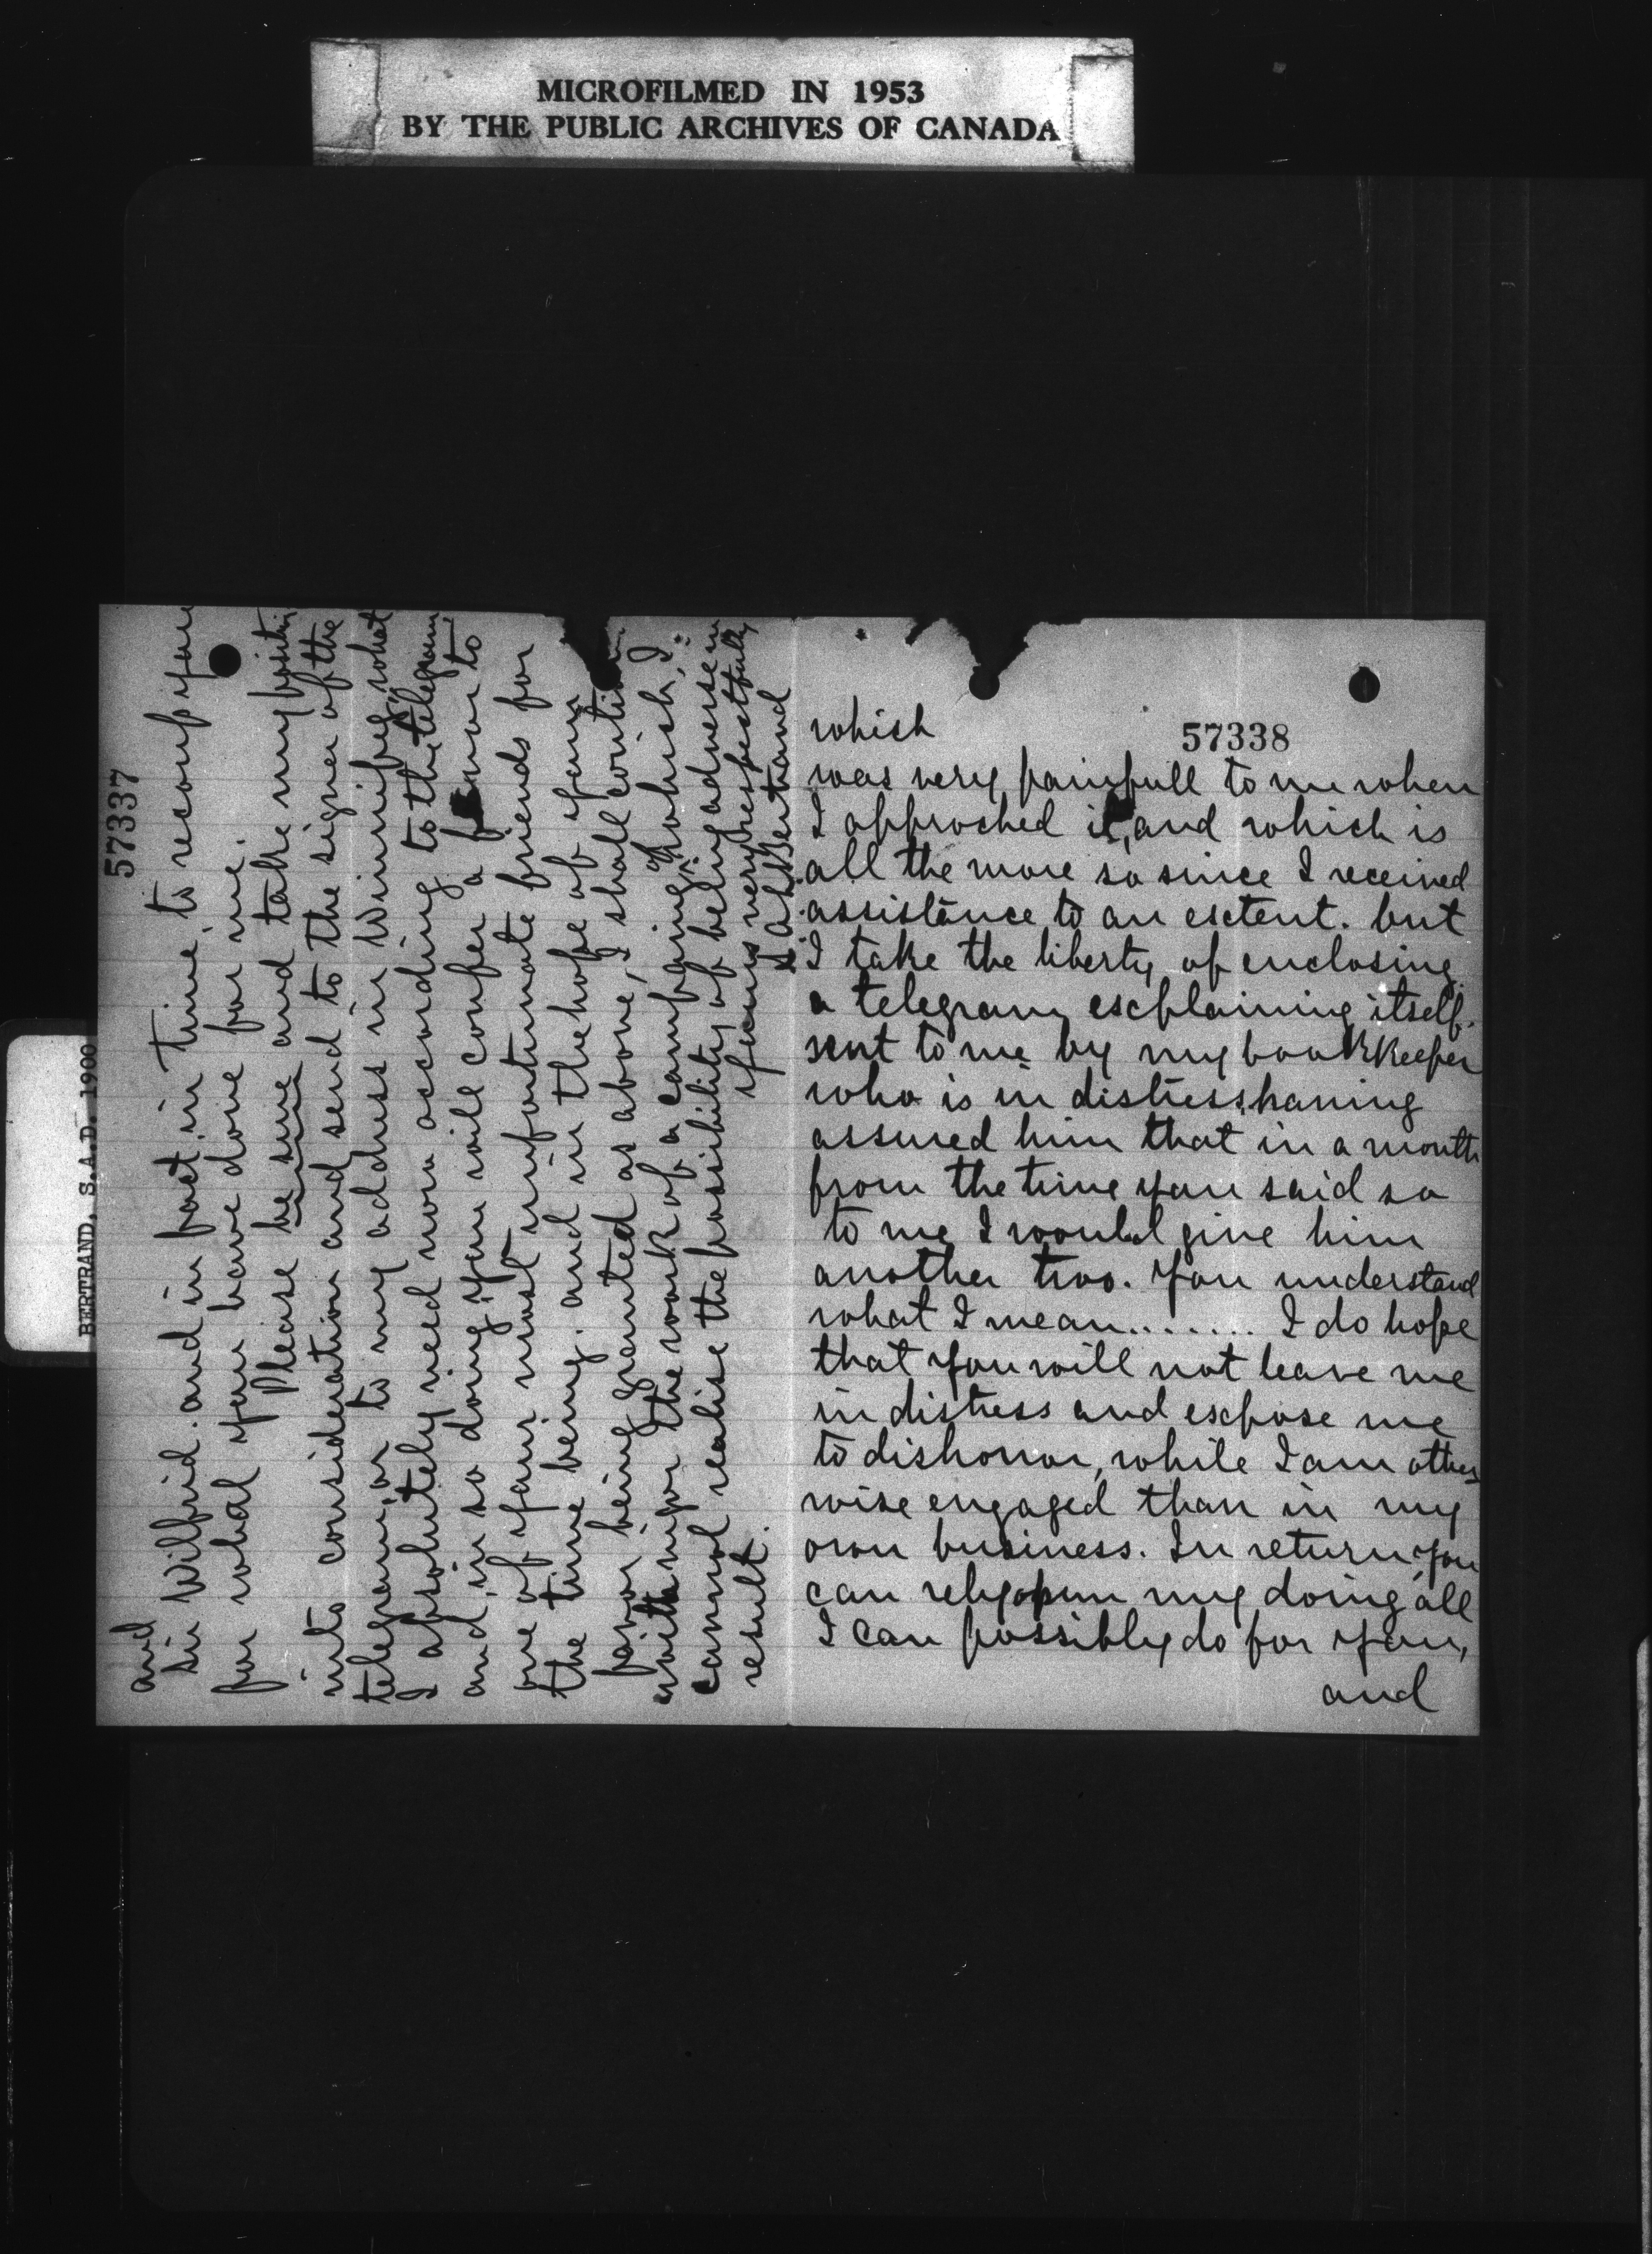 MICROFILMED IN 1953
BY THE PUBLIC ARCHIVES OF CANADA
BERTRAND, S.A.D. 1900
57338
which
was very painfull to me when
I approched it, and which is
all the more so since I received
assistance to an esctent. but
I take the liberty of enclosing
a telegram escplaining itself.
sent to me by my bookkeeper
who is in distress, having
assured him that in a month
from the time you said so
to me I would give him
another two. You understand
what I mean........ I do hope
that you will not leave me
in distress and escpose me
to dishonor, while I am other
wise engaged than in my
own business. In return, you
can rely opun my doing all
I can possibly do for you,
and
57337
and
Sir Wilfrid. and in fact in time, to recomp you
for what you have done for me.
Please be sure and take my position
into consideration and send to the signer of the
telegram, or to my address in Winnipeg, what
I absolutely need now according to the telegram,
and in so doing you will confer a favor to
one of your most unfortunate friends for
the time being. and in the hope of your
favor being granted as above, I shall
with the work of a campaign of which, I
cannot realise the possibility of being adverse in
result.
yours very respectfully
S A D Bertrand